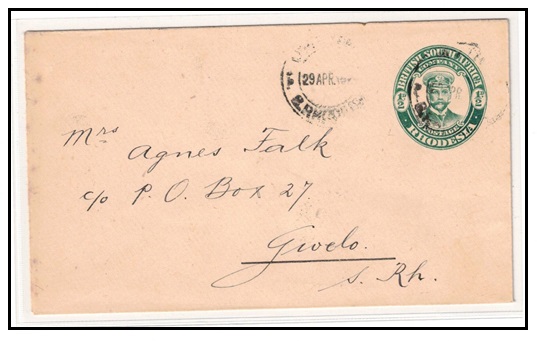 29 APR.
BRITISH SOUTH AFRICA
COMPANY
½ ½
POSTAGE
RHODESIA
Mrs
Agnes Falk
c/o P. O. Box 27
Gwelo.
S. Rh.